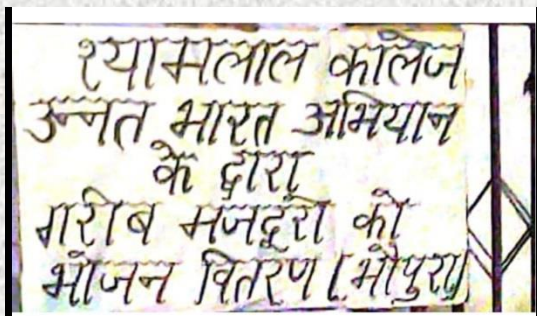 श्यामलाल कालेज
उन्नत भारत अभियान
के द्वारा
गरीब मजदूरो को
भोजन वितरण (भोपुरा)